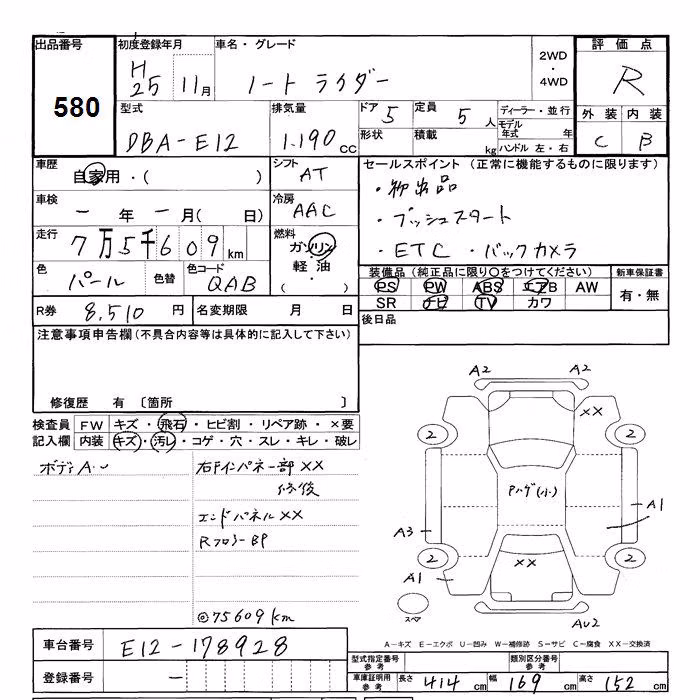 出品番号 初度登録年月 車名・グレード 2WD・4WD 評価点
580 H25 11月 ノート ライダー R
型式 排気量 ドア 5 定員 5人 ディーラー・並行 外装 内装
DBA-E12 1.190cc 形状 積載 kg モデル年式 年 C B
ハンドル 左・右
車歴 自家用・( ) シフト AT セールスポイント (正常に機能するものに限ります)
車検 ー年 ー月( 日) 冷房 AAC ・初出品
・プッシュスタート
走行 7万5千609km 燃料 ガソリン・軽油・( ) ・ETC ・バックカメラ
色 パール 色替 色コード QAB 装備品 (純正品に限り○をつけてください) 新車保証書
PS PW ABS エアB AW 有・無
R券 8,510円 名変期限 月 日 SR ナビ TV カワ
注意事項申告欄 (不具合内容等は具体的に記入して下さい) 後日品
修復歴 有 〔箇所 〕
検査員 FW キズ・飛石・ヒビ割・リペア跡・×要
記入欄 内装 キズ・汚レ・コゲ・穴・スレ・キレ・破レ
右Fインパネ一部××
修復
エンドパネル××
RフロアーBP
◎75609km
A2 A2
××
2 2
Pハゲ(小)
A1
A3
2 ×× 2
A1
スペア
AU2
A-キズ E-エクボ U-凹み W-補修跡 S-サビ C-腐食 XX-交換済
車台番号 E12-178928
登録番号 ー
型式指定番号 参考 類別区分番号 参考
車庫証明用 参考 長さ 414cm 幅 169cm 高さ 152cm